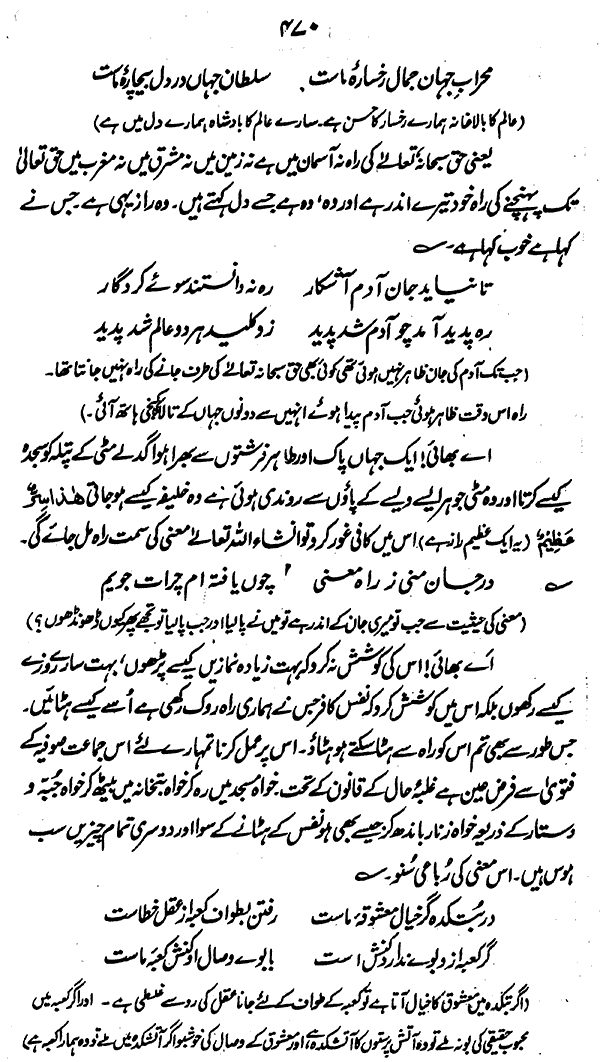 ۴۷۰
محراب جہان جمال رخسارۂ ماست سلطان جہاں در دل بیچارۂ ماست
(عالم کا بالاخانہ ہمارے رخسار کا حسن ہے۔ سارے عالم کا بادشاہ ہمارے دل میں ہے)
یعنی حق سبحانہٗ تعالےٰ کی راہ نہ آسمان میں ہے نہ زمین میں نہ مشرق میں نہ مغرب میں حق تعالیٰ
تک پہنچنے کی راہ خود تیرے اندر ہے اور وہ، وہ ہے جسے دل کہتے ہیں۔ وہ راز یہی ہے۔ جس نے
کہا ہے خوب کہا ہے۔
تا نیاید جان آدم آشکار رہ نہ دانستند سوئے کردگار
رہ پدید آمد چو آدم شد پدید زو کلید ہر دو عالم شد پدید
(جب تک آدم کی جان ظاہر نہیں ہوئی تھی کوئی بھی حق سبحانہ تعالےٰ کی طرف جانے کی راہ نہیں جانتا تھا۔
راہ اس وقت ظاہر ہوئی جب آدم پیدا ہوئے انہیں سے دونوں جہاں کے تالا کی کنجی ہاتھ آئی۔)
اے بھائی! ایک جہاں پاک اور طاہر فرشتوں سے بھرا ہوا گدلے مٹی کے پتلہ کو سجدہ
کیسے کرتا اور وہ مٹی جو ہر ایسے ویسے کے پاؤں سے روندی ہوئی ہے وہ خلیفہ کیسے ہو جاتی ھٰذَا سِرٌّ
عَظِیْمٌ (یہ ایک عظیم راز ہے) اس میں کافی غور کرو تو انشاء اللہ تعالےٰ معنی کی سمت راہ مل جائے گی۔
در جان منی ز راہ معنی چوں یافتہ ام چرات جویم
(معنی کی حیثیت سے جب تو میری جان کے اندر ہے تو میں نے پا لیا اور جب پا لیا تو تجھے پھر کیوں ڈھونڈھوں؟)
اے بھائی! اس کی کوشش نہ کرو کہ بہت زیادہ نمازیں کیسے پڑھوں، بہت سارے روزے
کیسے رکھوں بلکہ اس میں کوشش کرو کہ نفس کافر جس نے ہماری راہ روک رکھی ہے اُسے کیسے ہٹائیں۔
جس طور سے بھی تم اس کو راہ سے ہٹا سکتے ہو ہٹاؤ۔ اس پر عمل کرنا تمہارے لئے اس جماعت صوفیہ کے
فتویٰ سے فرض عین ہے غلبۂ حال کے قانون کے تحت۔ خواہ مسجد میں رہ کر خواہ بتخانہ میں بیٹھ کر خواہ جُبّہ و
دستار کے ذریعہ خواہ زنار باندھ کر جیسے بھی ہو نفس کے ہٹانے کے سوا اور دوسری تمام چیزیں سب
ہوس ہیں۔ اس معنی کی رُباعی سُنو۔
در بتکدہ گر خیال معشوقۂ ماست رفتن بطواف کعبہ از عقل خطاست
گر کعبہ ازو بوے ندارد کنش است با بوے وصال او کنش کعبۂ ماست
(اگر بتکدہ میں معشوق کا خیال آتا ہے تو کعبہ کے طواف کے لئے جانا عقل کی رو سے غلطی ہے۔ اور اگر کعبہ میں
محبوب حقیقی کی بو نہ ملے تو وہ آتش پرستوں کا آتشکدہ ہے، اور معشوق کے وصال کی خوشبو اگر آتشکدہ میں ملے تو وہ ہمارا کعبہ ہے)